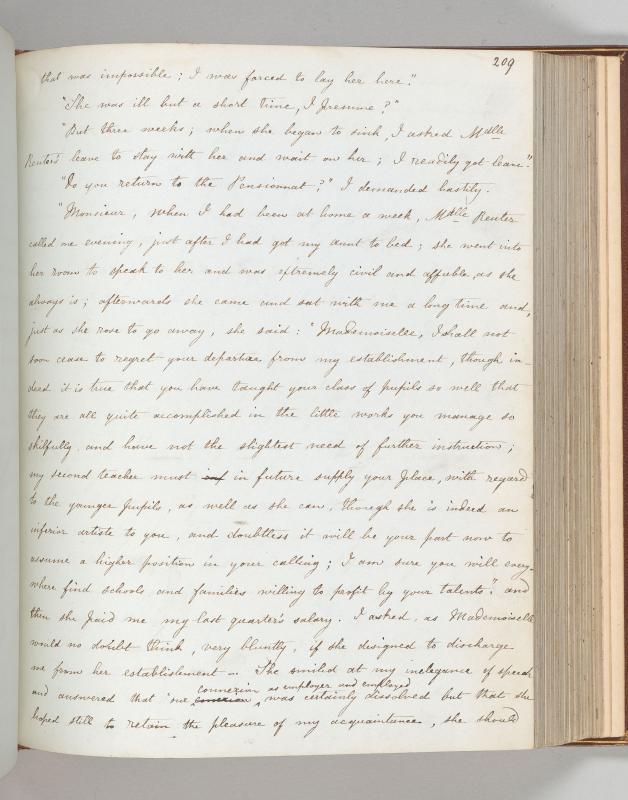 209
that was impossible; I was forced to lay her here."
"She was ill but a short time, I presume?"
"But three weeks; when she began to sink, I asked Mdlle
Reuter's leave to stay with her and wait on her; I readily got leave."
"Do you return to the Pensionnat?" I demanded hastily.
"Monsieur, when I had been at home a week, Mdlle Reuter
called one evening, just after I had got my aunt to bed; she went into
her room to speak to her and was extremely civil and affable, as she
always is; afterwards she came and sat with me a long time and,
just as she rose to go away, she said: "Mademoiselle, I shall not
soon cease to regret your departure from my establishment, though in-
deed it is true that you have taught your class of pupils so well that
they are all quite accomplished in the little works you manage so
skilfully, and have not the slightest need of further instruction;
my second teacher must in future supply your place, with regard
to the younger pupils, as well as she can, though she is indeed an
inferior artiste to you, and doubtless it will be your part now to
assume a higher position in your calling; I am sure you will every-
where find schools and families willing to profit by your talents." and
then she paid me my last quarter's salary. I asked, as Mademoiselle
would no doubt think, very bluntly, if she designed to discharge
me from her establishment — She smiled at my inelegance of speech
and answered that "our connexion as employer and employed was certainly dissolved but that she
hoped still to retain the pleasure of my acquaintance, she should